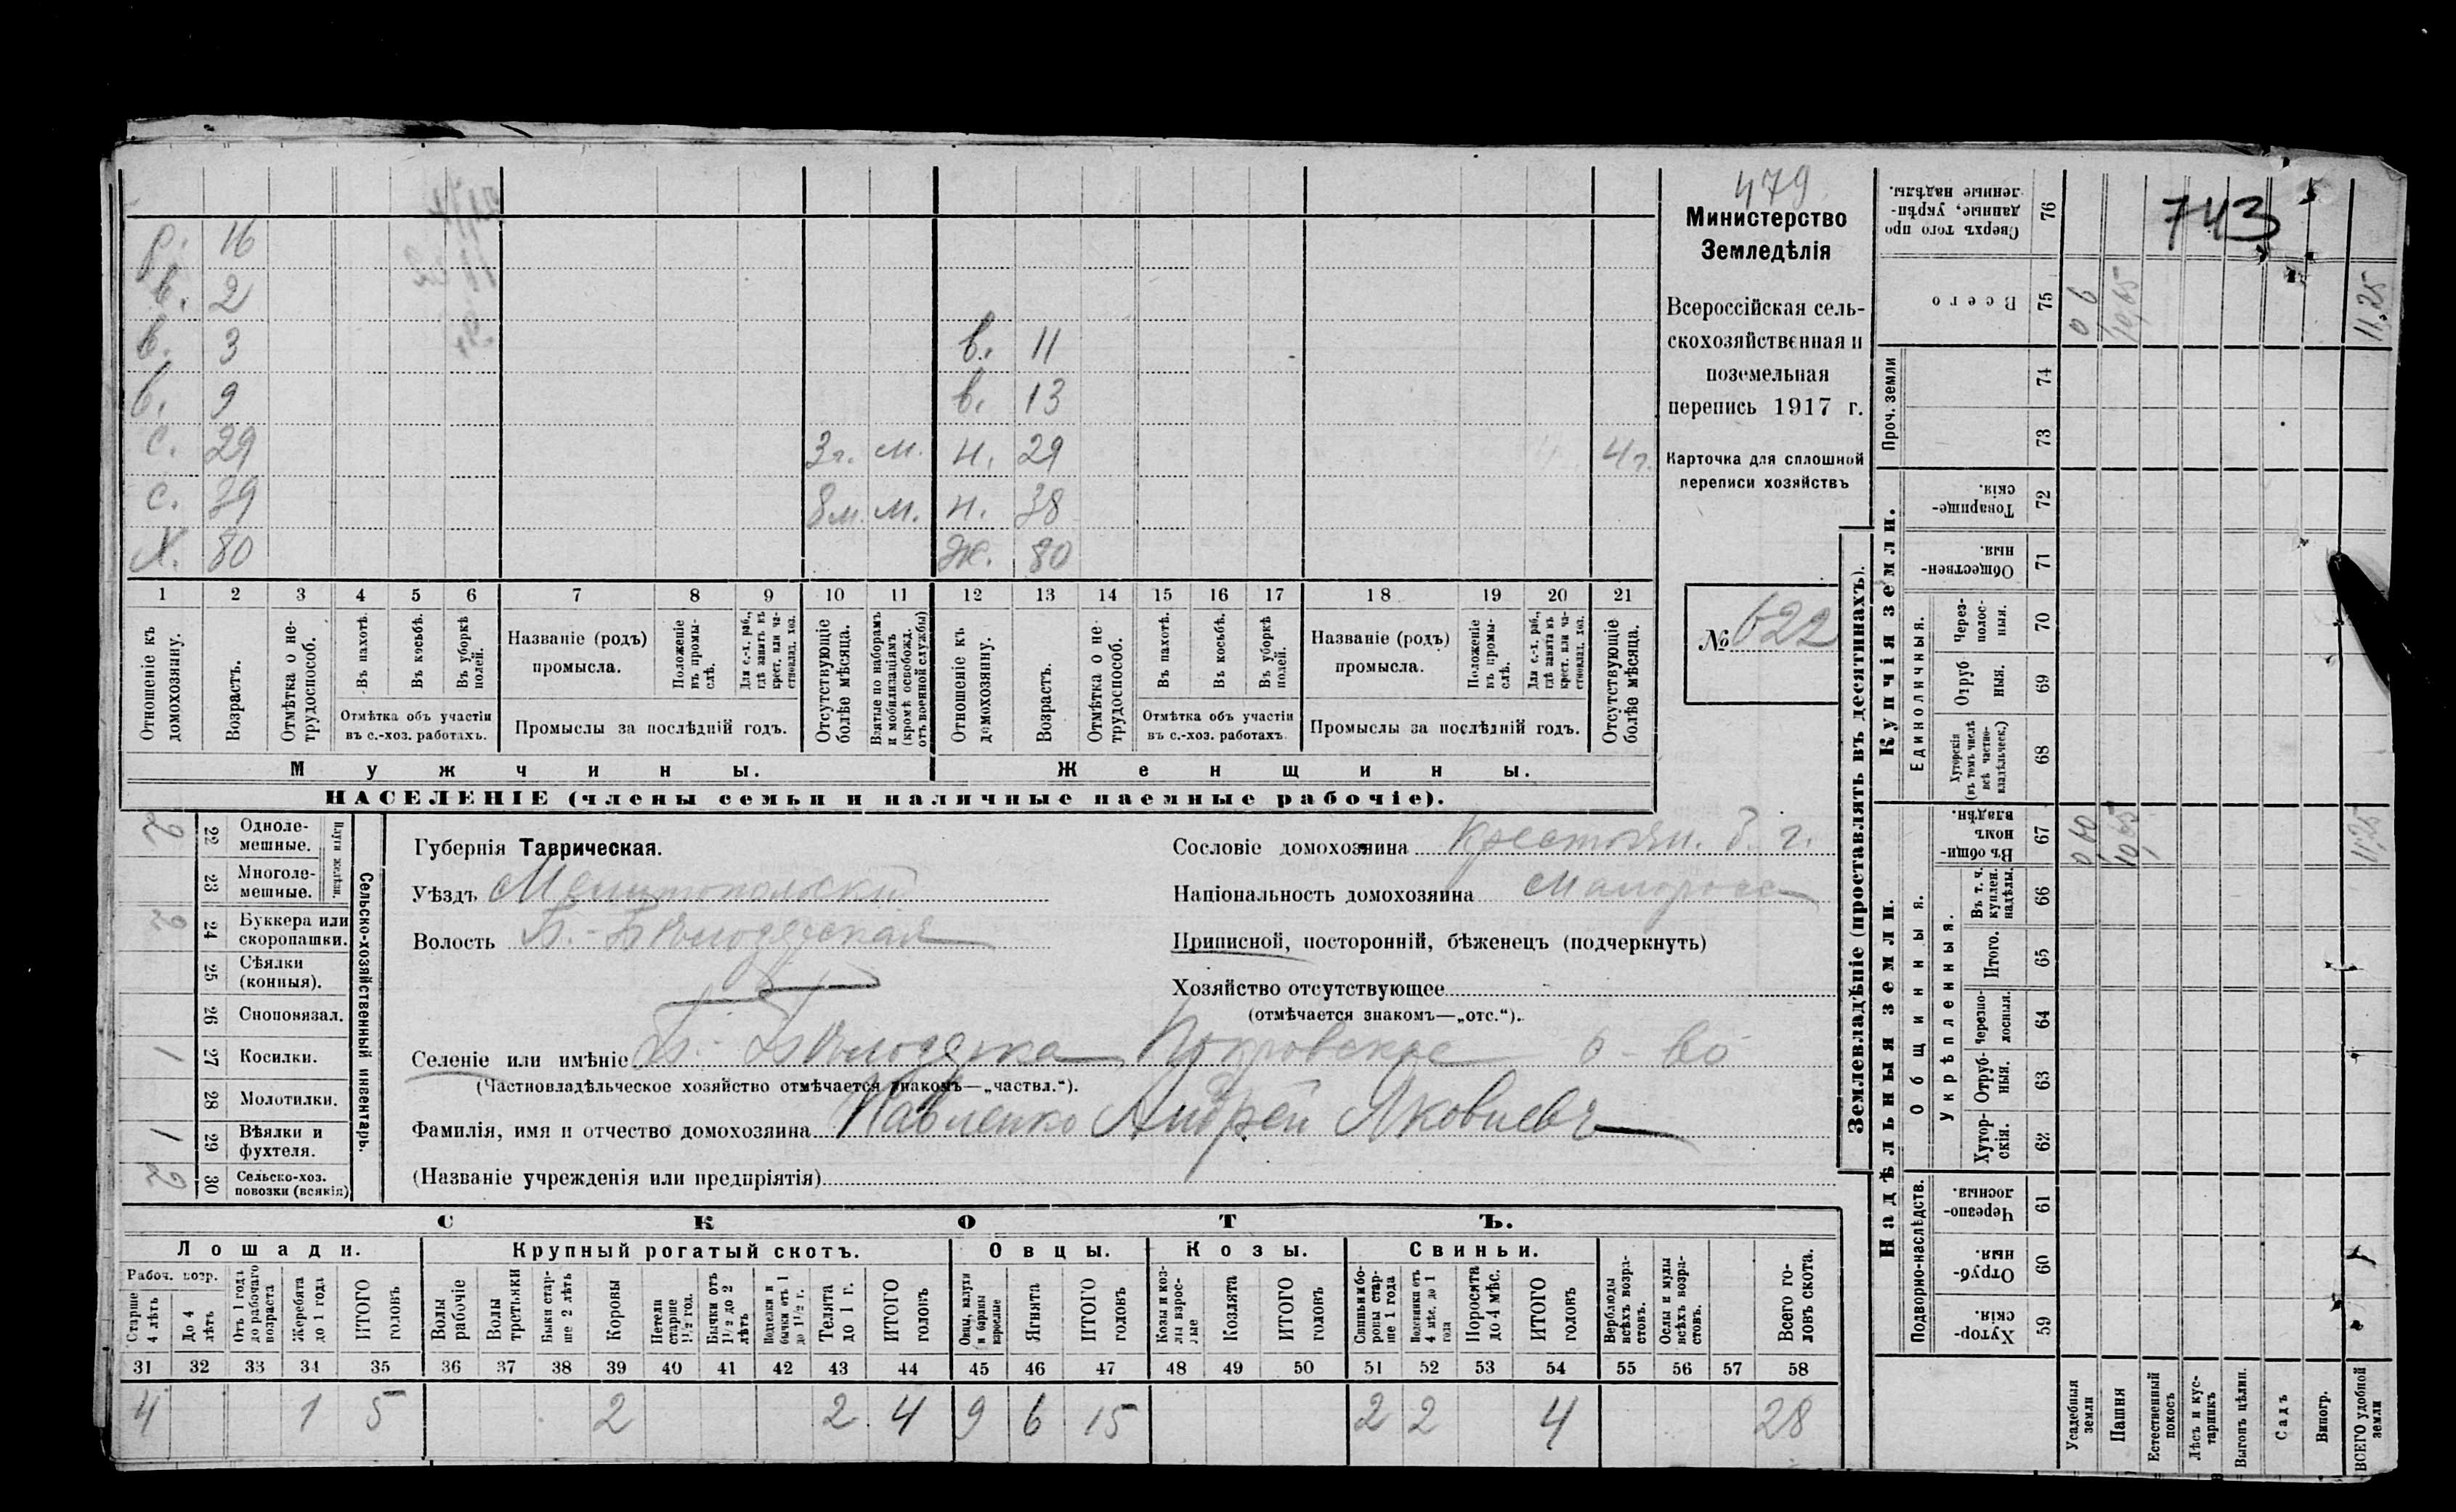 р. 16
в. 2
в. 3 в. 11
в. 9 в. 13
с. 29 3 г. м. н. 29 4 г.
с. 39 8 м. м. н. 38
Х. 80 Ж. 80
1 2 3 4 5 6 7 8 9 10 11 12 13 14 15 16 17 18 19 20 21
Отношеніе къ домохозяину.
Возрастъ.
Отмѣтка о не-трудоспособ.
Въ пахотѣ.
Въ косьбѣ.
Въ уборкѣ полей.
Отмѣтка объ участіи
въ с.-хоз. работахъ.
Названіе (родъ)
промысла.
Положеніе въ промы-слѣ.
Для с.-х. раб., гдѣ занятъ въ крест. или ча-стновлад. хоз.
Промыслы за послѣдній годъ.
Отсутствующіе болѣе мѣсяца.
Взятые по наборамъ и мобилизаціямъ (кромѣ освобожд. отъ военной службы)
Отношеніе къ домохозяину.
Возрастъ.
Отмѣтка о не-трудоспособ.
Въ пахотѣ.
Въ косьбѣ.
Въ уборкѣ полей.
Отмѣтка объ участіи
въ с.-хоз. работахъ.
Названіе (родъ)
промысла.
Положеніе въ промы-слѣ.
Для с.-х. раб., гдѣ занята въ крест. или ча-стновлад. хоз.
Промыслы за послѣдній годъ.
Отсутствующіе болѣе мѣсяца.
Мужчины. Женщины.
НАСЕЛЕНІЕ (члены семьи и наличные наемные рабочіе).
479
Министерство
Земледѣлія
Всероссійская сель-
скохозяйственная и
поземельная
перепись 1917 г.
Карточка для сплошной
переписи хозяйствъ
№ 622
Сельско-хозяйственный инвентарь.
2 22 Одноле-мешные.
23 Многоле-мешные.
24 Буккера или скоропашки.
25 Сѣялки (конныя).
26 Сноповязал.
1 27 Косилки.
28 Молотилки.
1 29 Вѣялки и фухтеля.
2 30 Сельско-хоз. повозки (всякія)
Губернія Таврическая.
Уѣздъ Мелитопольскій
Волость Б.-Бѣлозерская
Селеніе или имѣніе Б. Бѣлозерка Покровское о-во
(Частновладѣльческое хозяйство отмѣчается знакомъ—„частвл.“).
Фамилія, имя и отчество домохозяина Павленко Андрей Яковлевъ
(Названіе учрежденія или предпріятія)
Сословіе домохозяина Крестьян.
Національность домохозяина Малоросс
Приписной, посторонній, бѣженецъ (подчеркнуть)
Хозяйство отсутствующее
(отмѣчается знакомъ—„отс.“).
СКОТЪ.
Лошади. Крупный рогатый скотъ. Овцы. Козы. Свиньи.
Рабоч. возр.
Старше 4 лѣтъ
До 4 лѣтъ
Отъ 1 года до рабочаго возраста
Жеребята до 1 года
ИТОГО головъ
Волы рабочіе
Волы третьяки
Быки стар-ше 2 лѣтъ
Коровы
Нетели старше 1½ год.
Бычки отъ 1½ до 2 лѣтъ
Водтелки и бычки отъ 1 до 1½ г.
Телята до 1 г.
ИТОГО головъ
Овцы, валухи и бараны взрослые
Ягнята
ИТОГО головъ
Козы и коз-лы взрос-лые
Козлята
ИТОГО головъ
Свиньи и бо-ровы стар-ше 1 года
Подсвинки отъ 4 мѣс. до 1 года
Поросята до 4 мѣс.
ИТОГО головъ
Верблюды всѣхъ возра-стовъ.
Ослы и мулы всѣхъ возра-стовъ.
Всего го-ловъ скота.
31 32 33 34 35 36 37 38 39 40 41 42 43 44 45 46 47 48 49 50 51 52 53 54 55 56 57 58
4 1 5 2 2 4 9 6 15 2 2 4 28
Землевладѣніе (проставлять въ десятинахъ).
743
Сверхъ того про данные, укрѣп-ленные надѣлы. 76
Всего 75 0 6 10,65 11,25
Проч. земли 74
73
Купчія земли.
Товарище-скія. 72
Обществен-ныя. 71
Единоличныя.
Через-полос-ныя. 70
Отруб ныя. 69
Хуторскія (въ томъ числѣ всѣ частно-владѣльческ.) 68
Надѣльныя земли.
Общинныя.
Въ общи-номъ владѣн. 67 0 60 10,65 11,25
Укрѣпленныя.
Въ т. ч. куплен. надѣлы. 66
Итого. 65
Черезпо-лосныя. 64
Отруб-ныя. 63
Хутор-скія. 62
Подворно-наслѣдств.
Черезпо-лосныя. 61
Отруб-ныя. 60
Хутор-скія. 59
Усадебныя земли
Пашня
Естественный покосъ
Лѣсъ и кус-тарникъ
Выгонъ цѣлин.
Садъ
Виногр.
ВСЕГО удобной земли